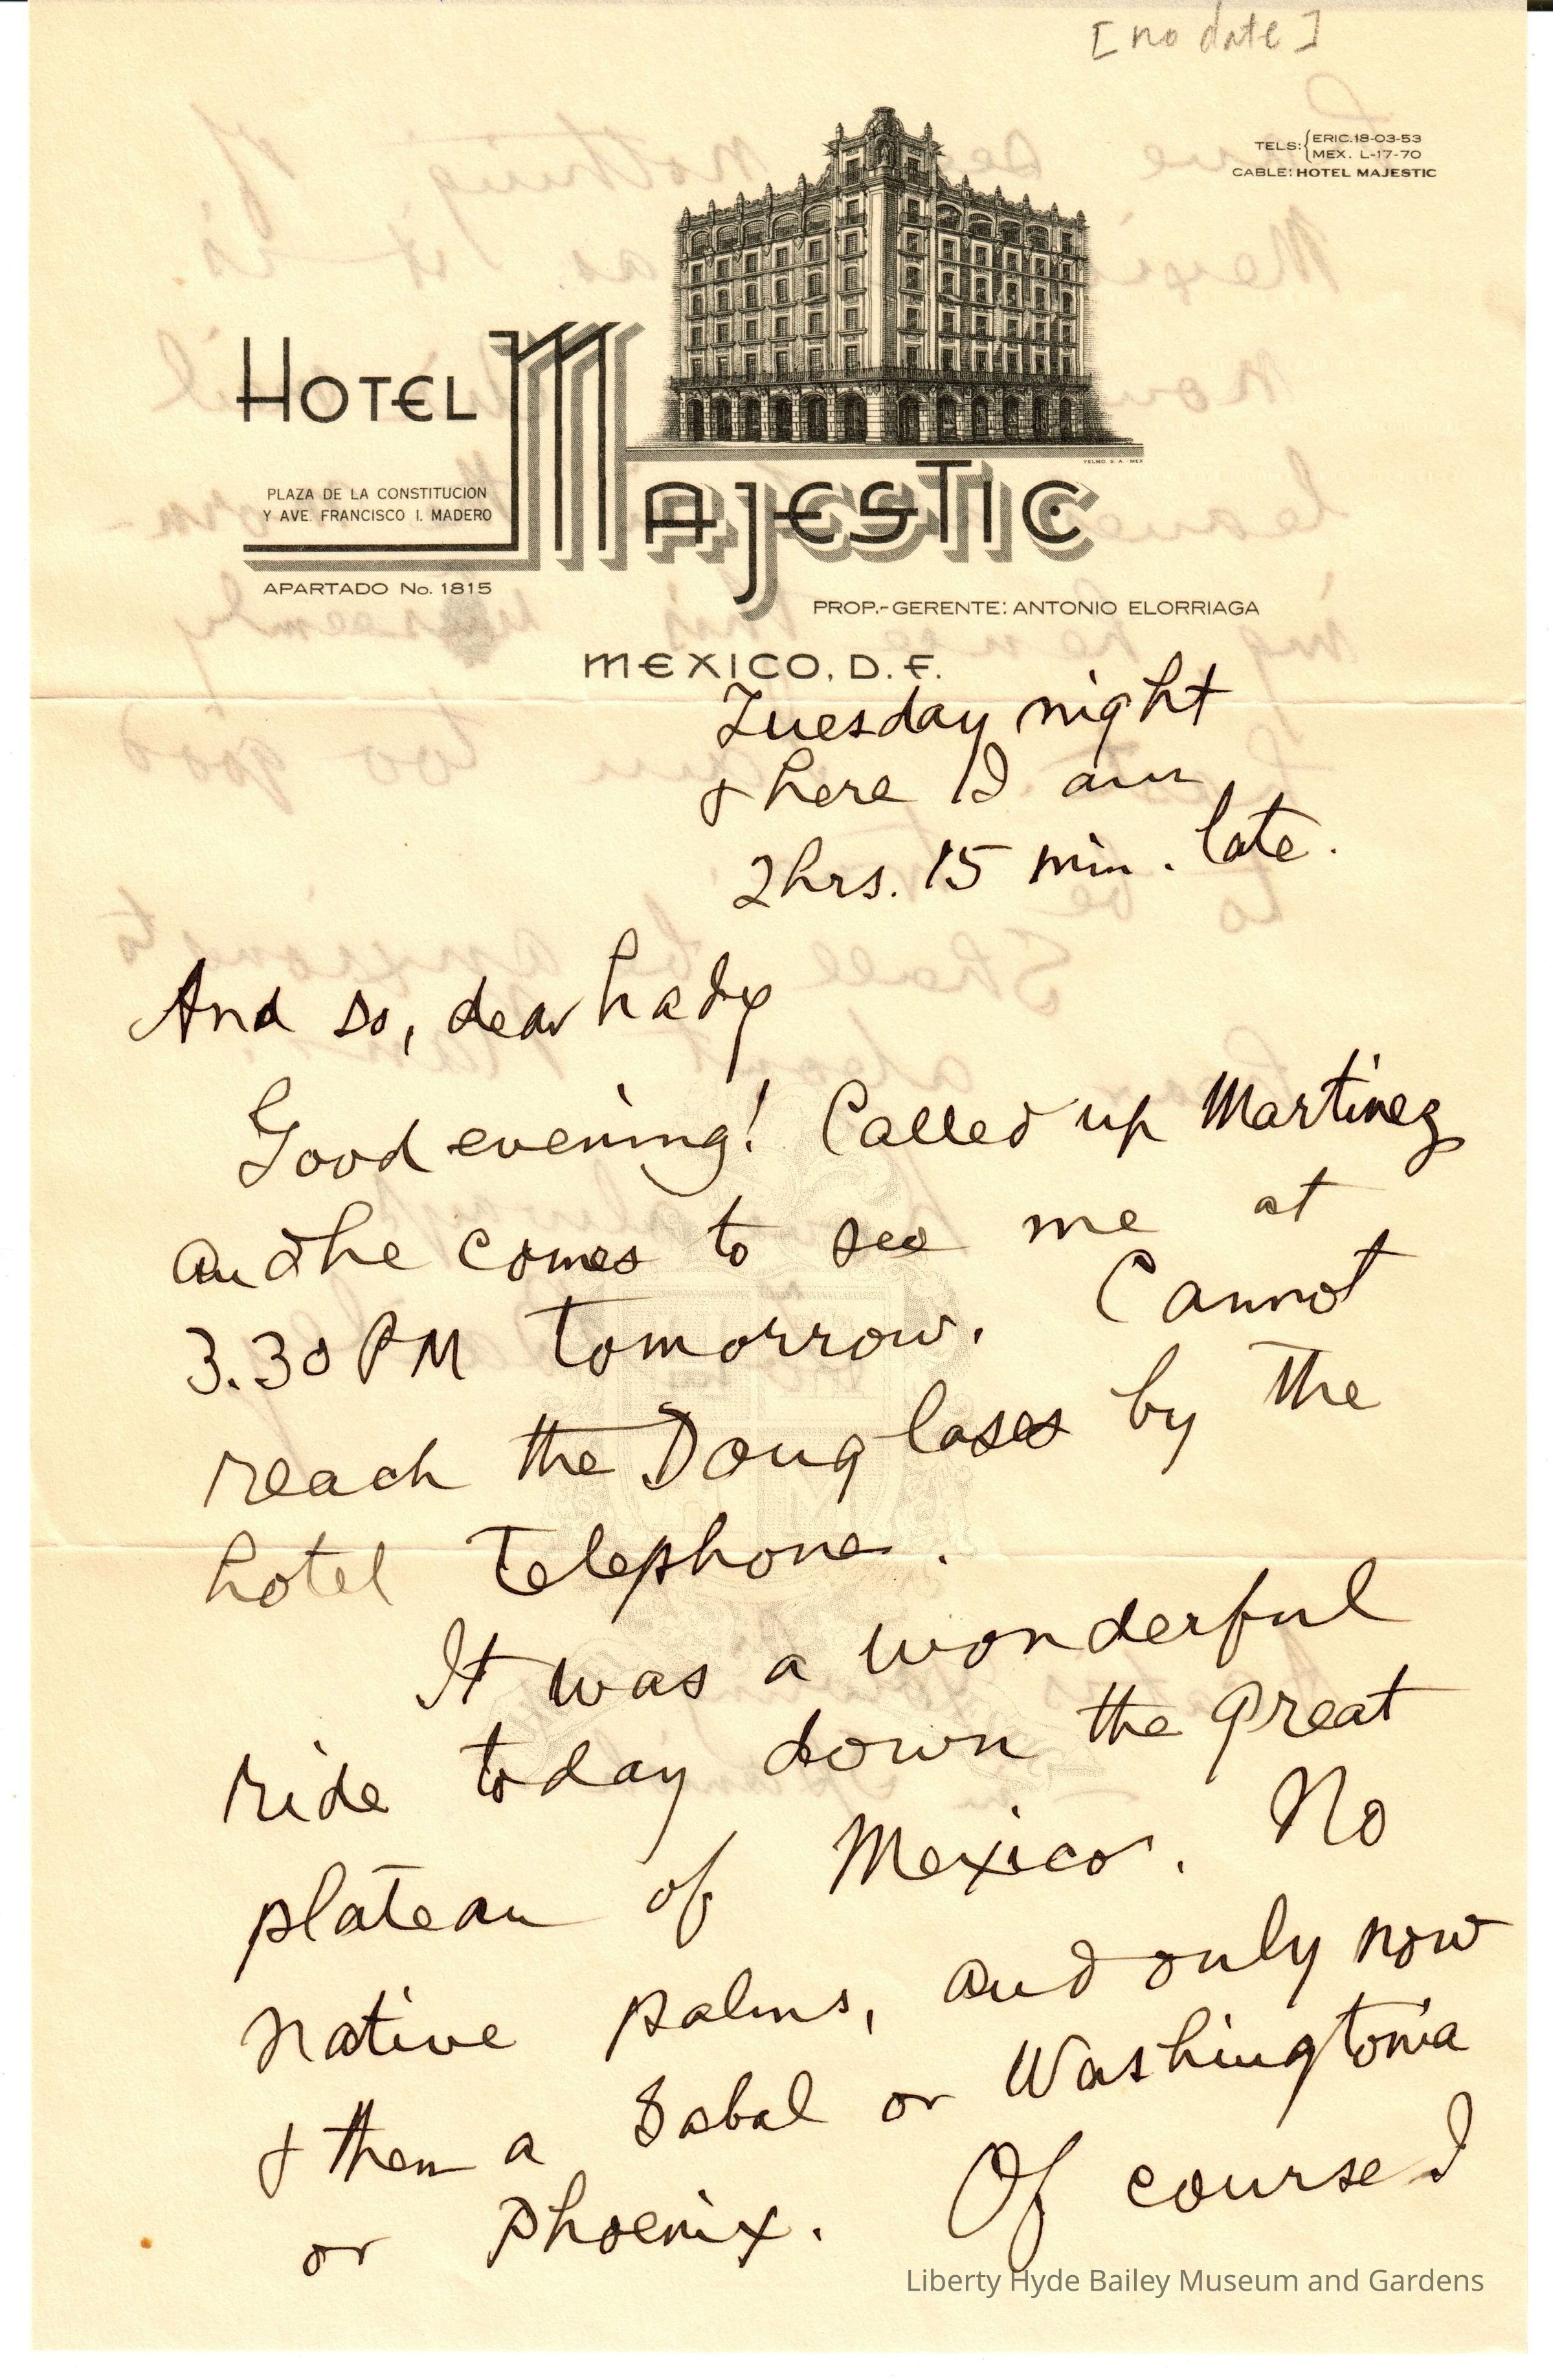 [no date]
TELS: ERIC. 18-03-53
MEX. L-17-70
CABLE: HOTEL MAJESTIC
HOTEL MAJESTIC
PLAZA DE LA CONSTITUCION
Y AVE. FRANCISCO I. MADERO
APARTADO No. 1815
PROP.-GERENTE: ANTONIO ELORRIAGA
MEXICO, D. F.
Tuesday night
& here I am
2 hrs. 15 min. late.
And so, dear Lady
Good evening! Called up Martinez
and he comes to see me at
3.30 PM tomorrow. Cannot
reach the Douglases by the
hotel telephone.
It was a wonderful
ride today down the great
plateau of Mexico. No
native palms, and only now
& then a Sabal or Washingtonia
or Phoenix. Of course I
Liberty Hyde Bailey Museum and Gardens